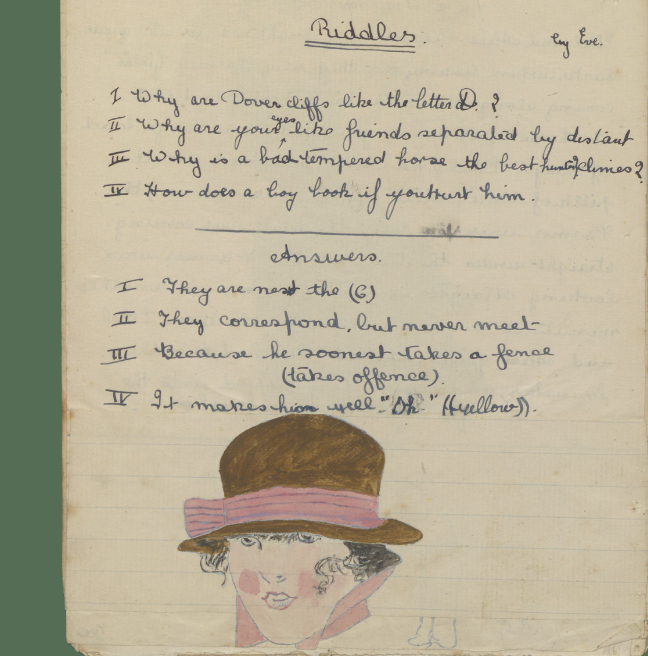 Riddles.
by Eve.
I Why are Dover cliffs like the letter D ?
eyes
II Why are your like friends separated by distant climes?
III Why is a bad-tempered horse the best hunter?
IV How does a boy look if you hurt him.
Answers.
I They are next the (C)
II They correspond, but never meet
III Because he soonest takes a fence
(takes offence).
IV It makes him yell "Oh" (yellow).